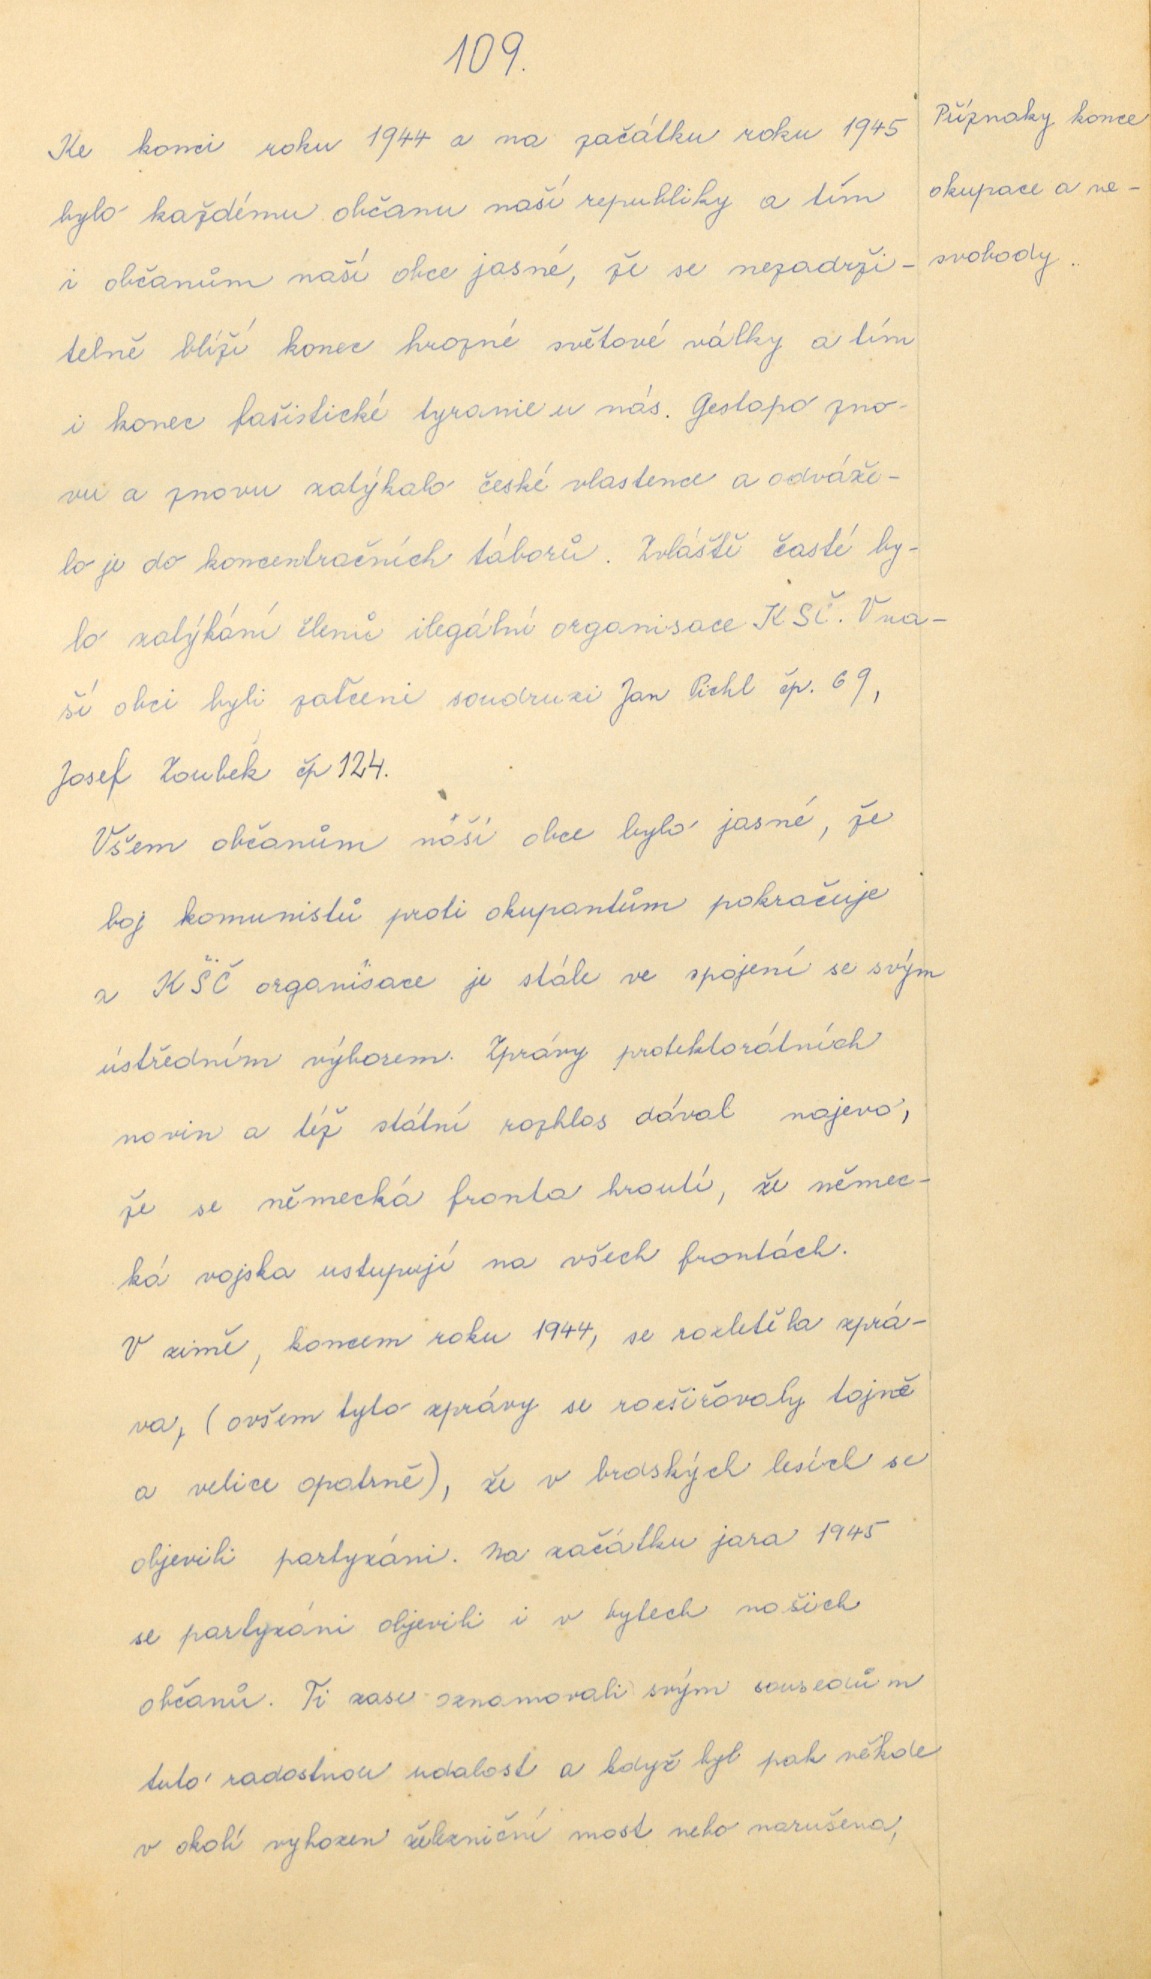 109.
Ke konci roku 1944 a na začátku roku 1945
bylo každému občanu naší republiky a tím
i občanům naší obce jasné, že se nezadrži-
telně blíží konec hrozné světové války a tím
i konec fašistické tyranie u nás. Gestapo zno-
vu a znovu zatýkalo české vlastence a odváže-
lo je do koncentračních táborů. Zvláště časté by-
lo zatýkání členů ilegální organisace KSČ. V na-
ší obci byli zatčeni soudruzi Jan Pichl čp. 69,
Josef Zoubek čp 124.
Všem občanům naší obce bylo jasné, že
boj komunistů proti okupantům pokračuje
a KSČ organisace je stále ve spojení se svým
ústředním výborem. Zprávy protektorátních
novin a též státní rozhlas dával najevo,
že se německá fronta hroutí, že němec-
ká vojska ustupují na všech frontách.
V zimě, koncem roku 1944, se rozletěla zprá-
va, (ovšem tyto zprávy se rozšiřovaly tajně
a velice opatrně), že v brdských lesích se
objevili partyzáni. Na začátku jara 1945
se partyzáni objevili i v bytech našich
občanů. Ti zase oznamovali svým sousedům
tuto radostnou udalost a když byl pak někde
v okolí vyhozen železniční most nebo narušena,
Příznaky konce
okupace a ne-
svobody.